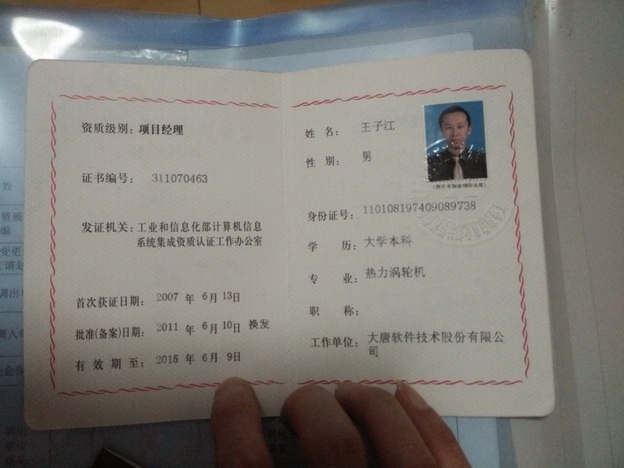 资质级别：项目经理
证书编号：311070463
发证机关：工业和信息化部计算机信息
系统集成资质认证工作办公室
首次获证日期：2007 年 6月 13日
批准(备案)日期：2011 年 6月 10日 换发
有效期至：2015 年 6月 9日
姓名：王子江
性别：男
身份证号：110108197409089738
学历：大学本科
专业：热力涡轮机
职称：
工作单位：大唐软件技术股份有限公
司